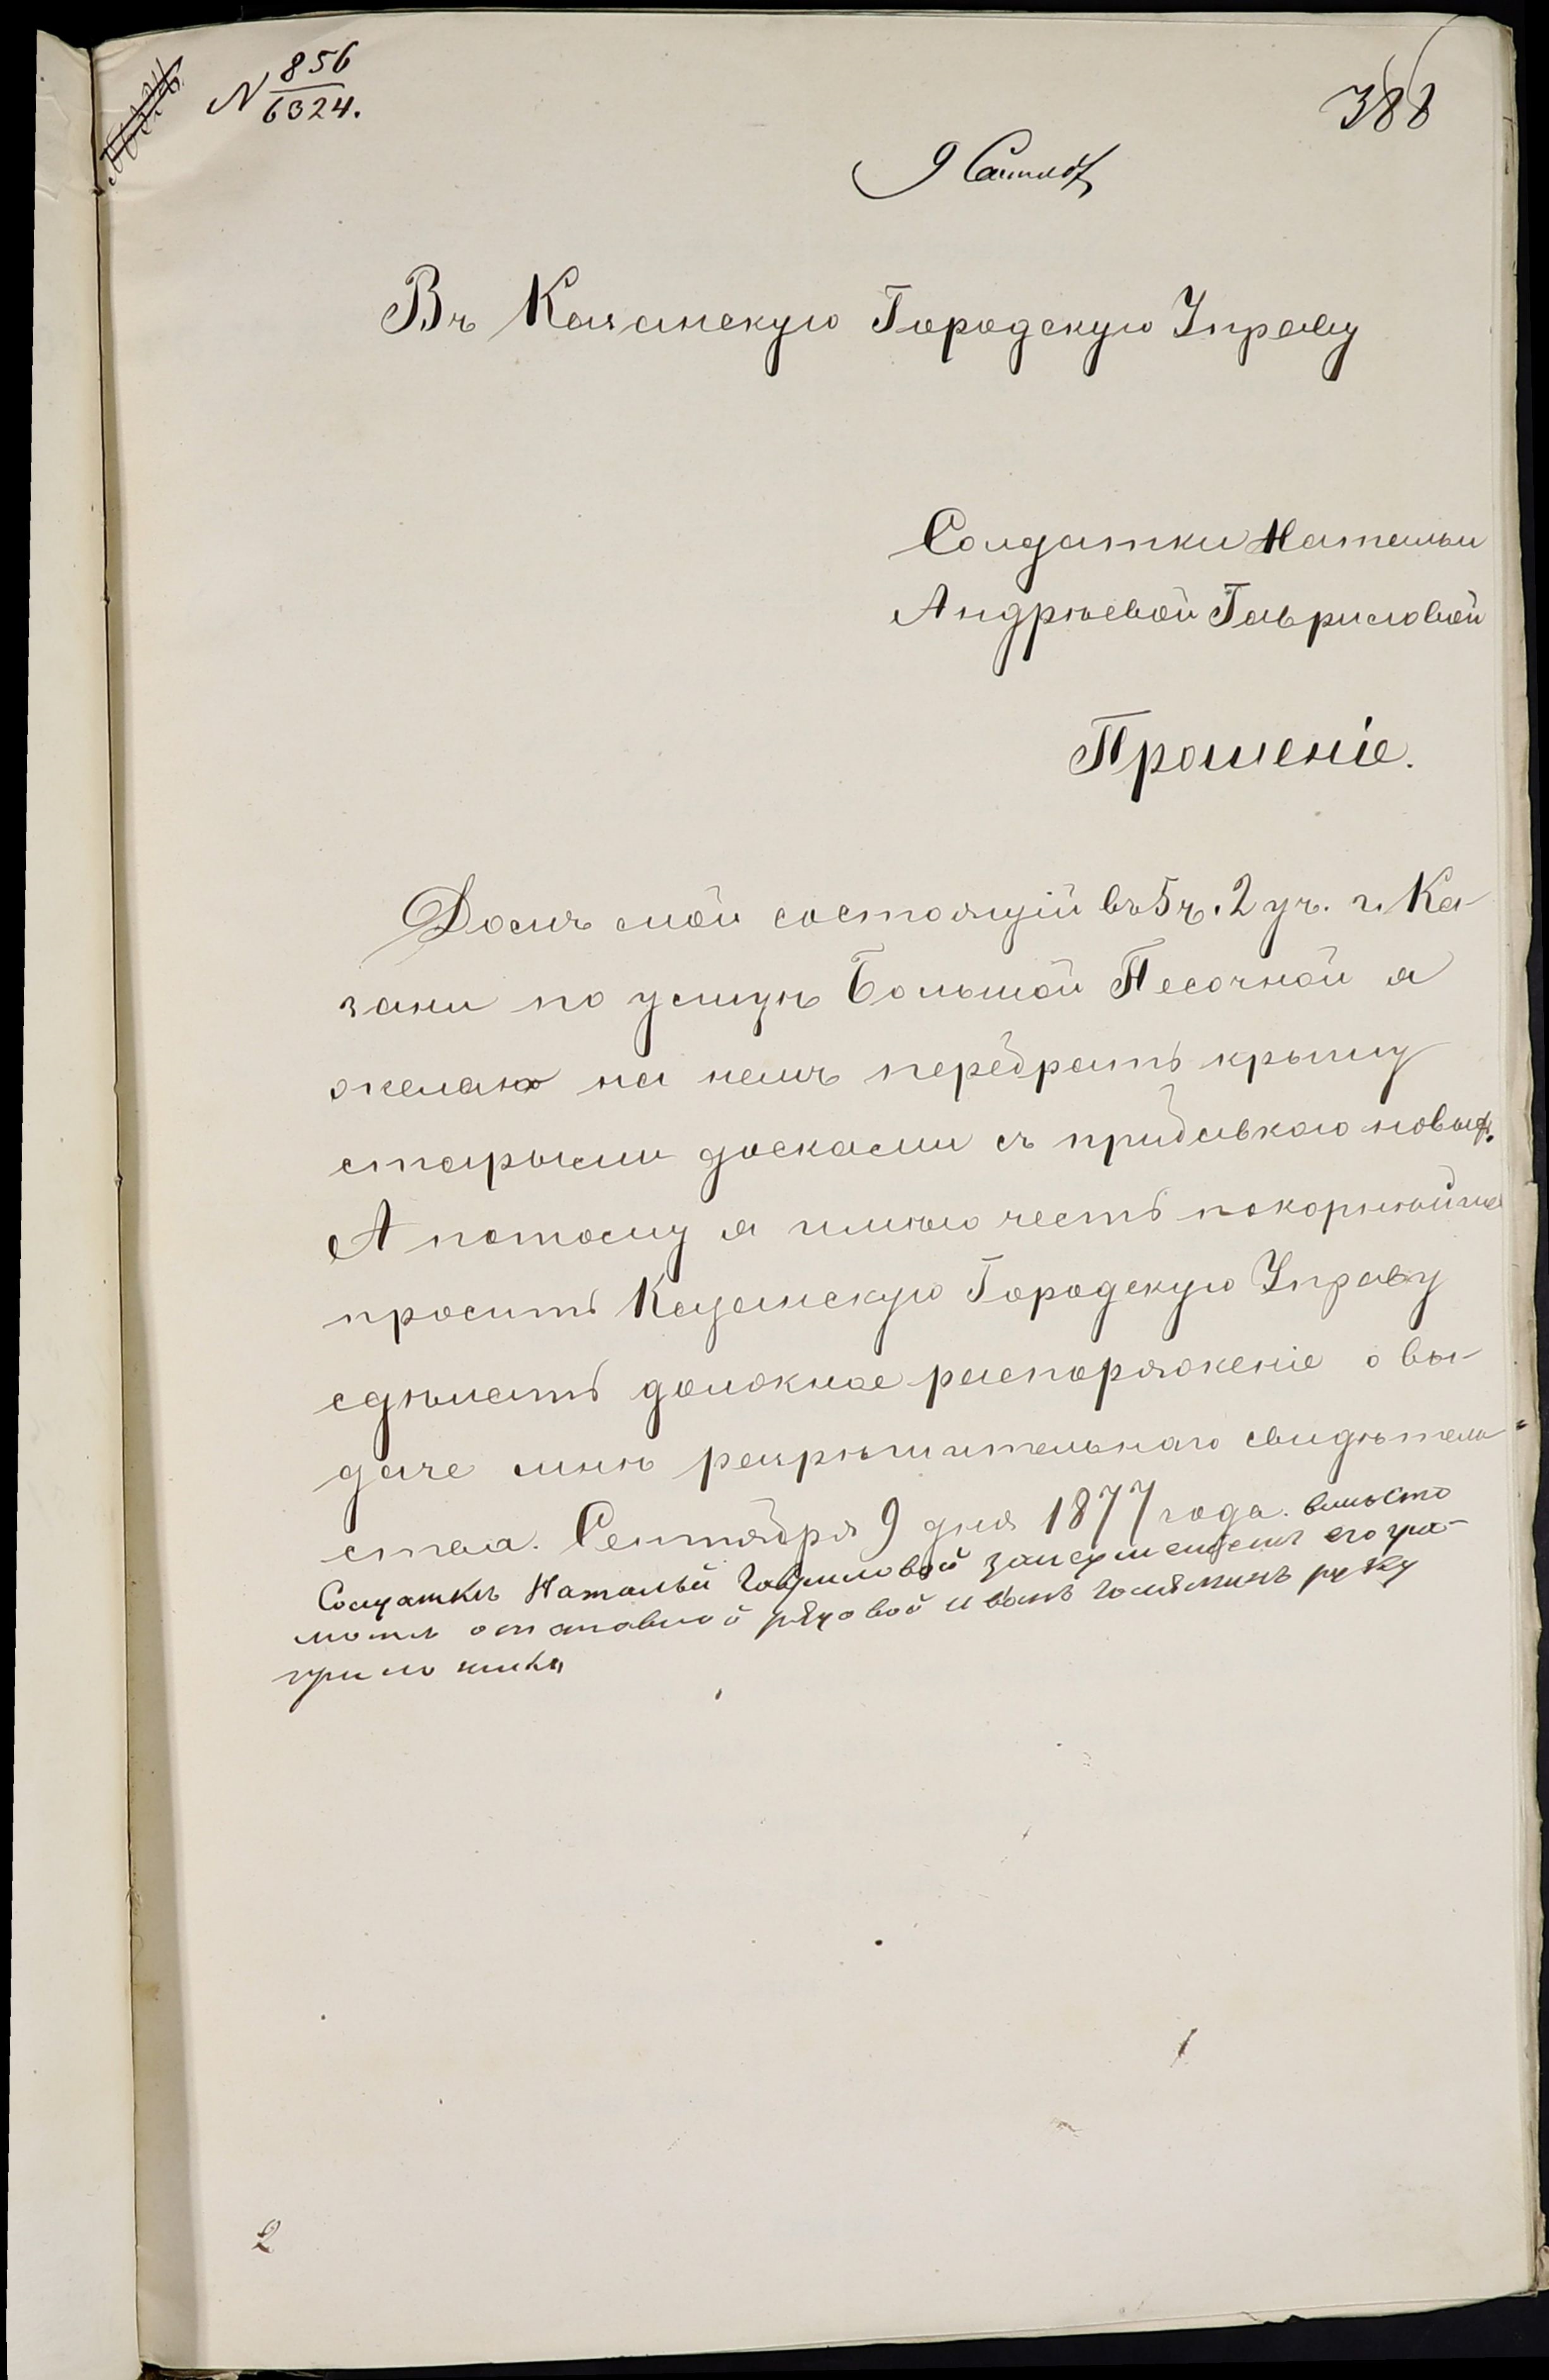 N 856
6324.
388
9 Сентяб
Въ Казанскую Городскую Управу
Солдатки Натальи
Андрѣевой Гавриловой
Прошеніе.
Домъ мой состоящій въ 5 ч. 2 уч. г. Ка-
зани по улицѣ Большой Песочной я
желаю на немъ перебрать крышу
старыми досками съ прибавкою новыхъ.
А потому я имѣю честь покорнѣйше
просить Казанскую Городскую Управу
сдѣлать должное распоряженіе о вы-
даче мнѣ разрѣшительнаго свидѣтель-
ства. Сентября 9 дня 1877 года. вмѣсто
Солдатки Натальи Гавриловой
отставной рядовой Иванъ руку
приложилъ
2